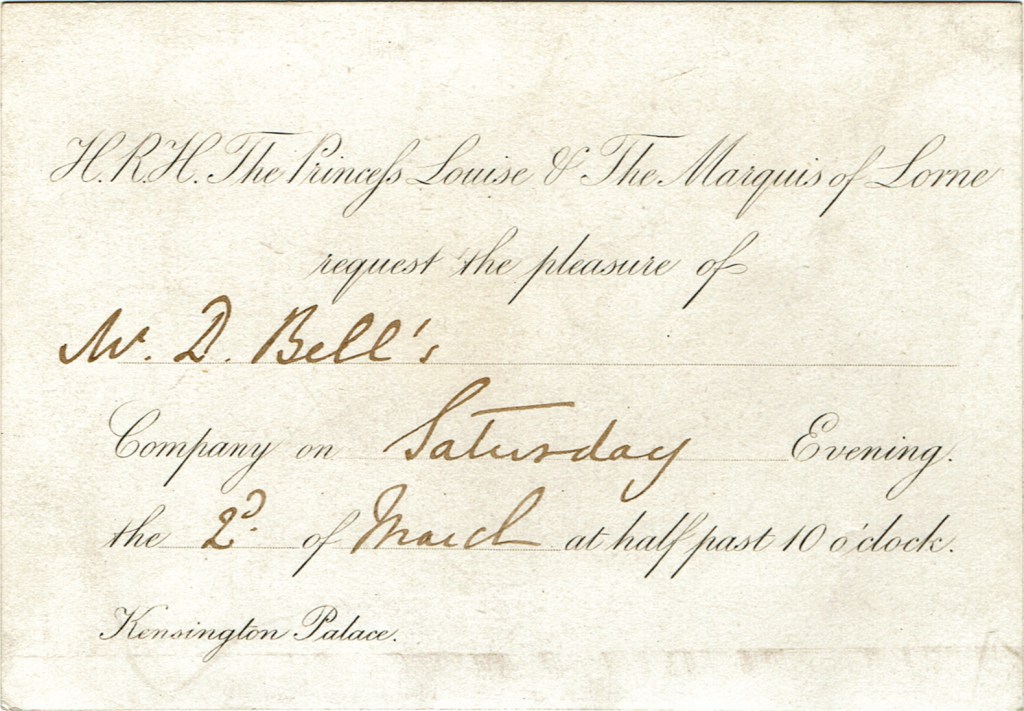 H.R.H. The Princeſs Louise & The Marquis of Lorne
request the pleasure of
Mr. D. Bell's
Company on Saturday Evening.
the 2d. of March at half past 10 o'clock.
Kensington Palace.